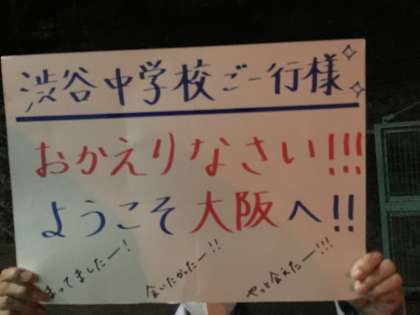 渋谷中学校ご一行様
おかえりなさい!!!
ようこそ大阪へ!!
まってましたー! 会いたかったー!! やっと会えたー!!!